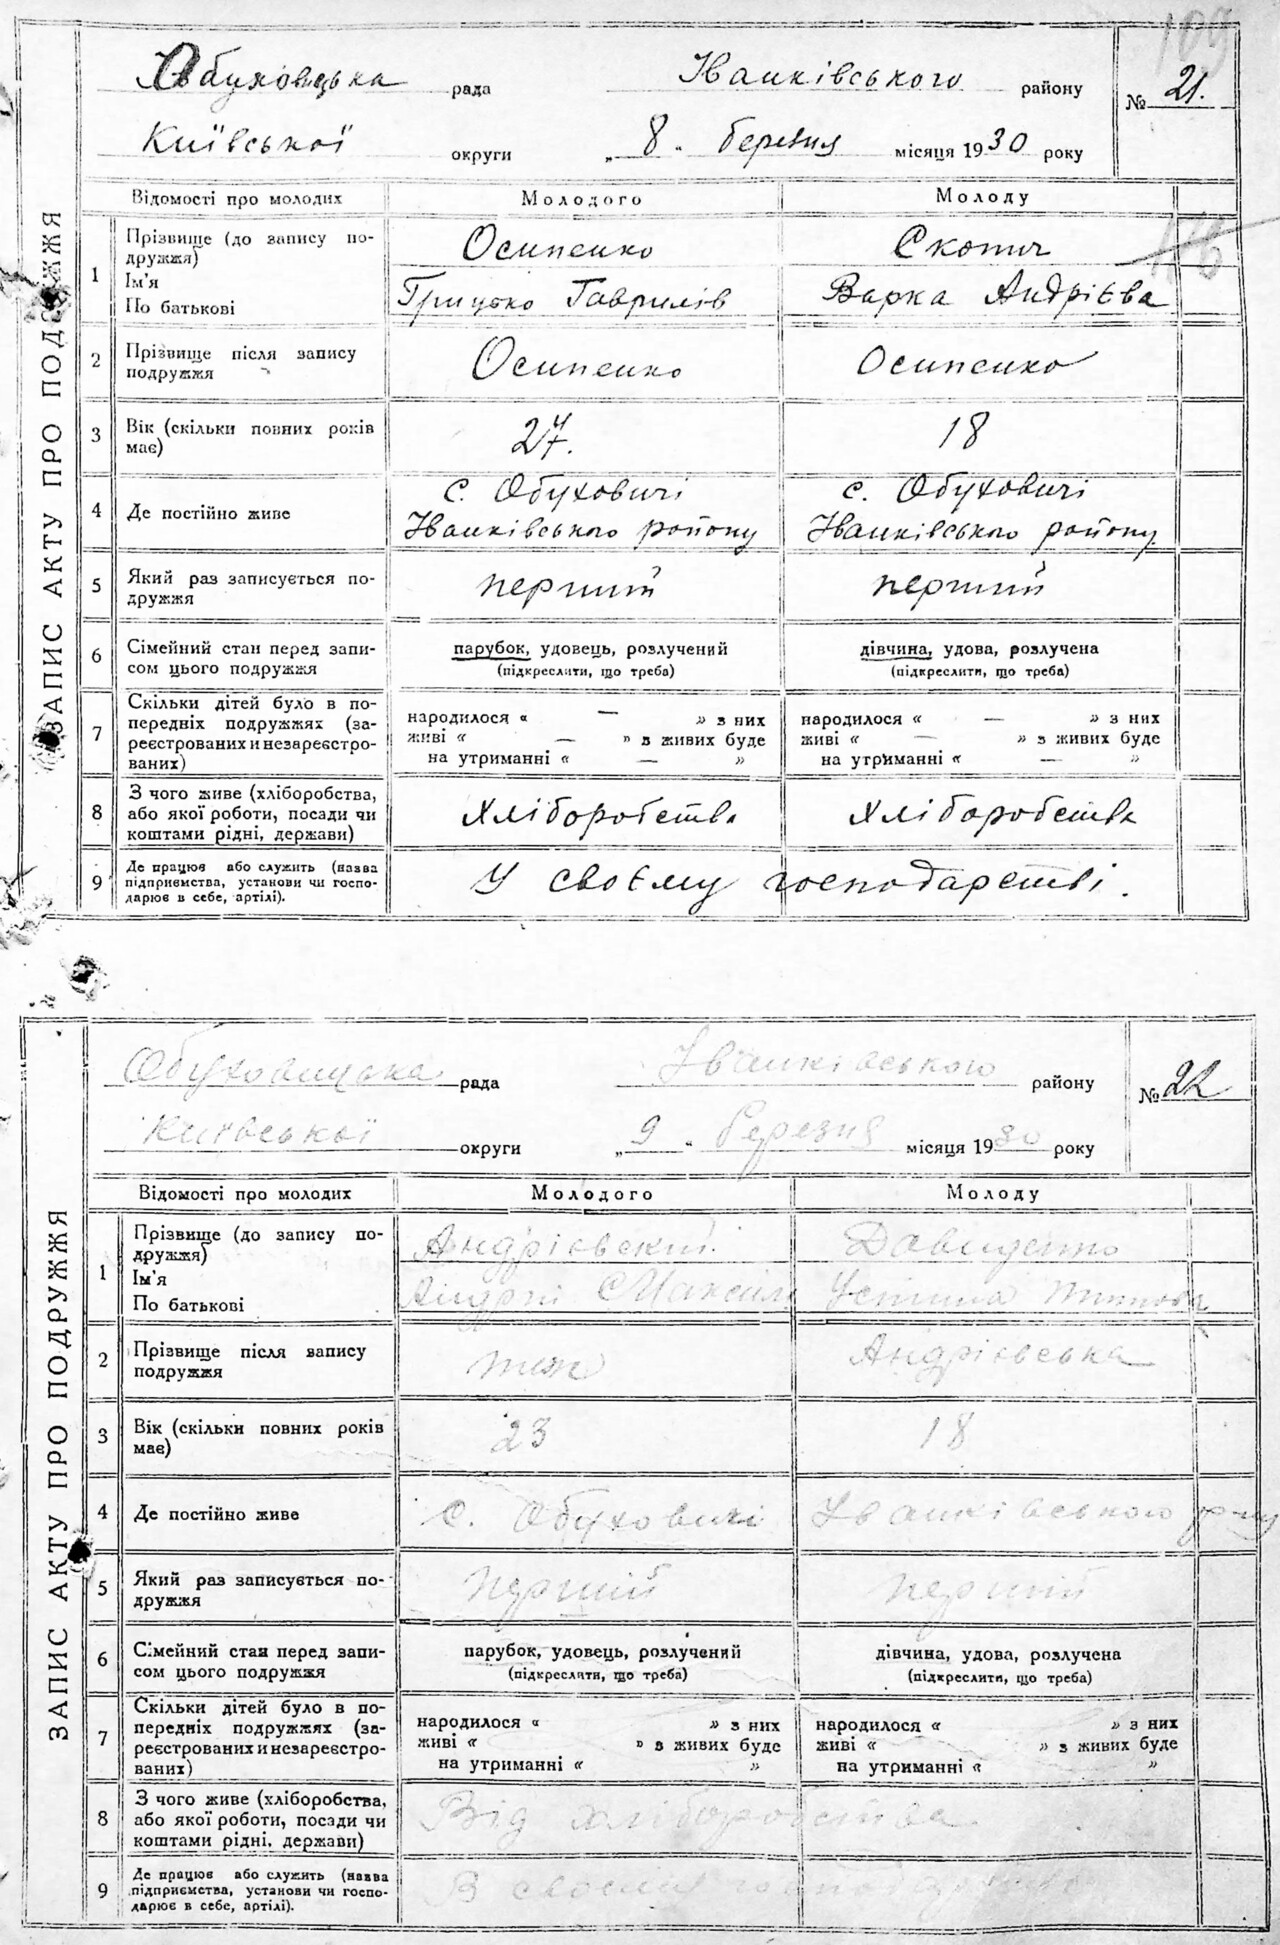 109
Обуховицька рада Іванківського району № 21.
Київської округи „ 8 „ березня місяця 1930 року
ЗАПИС АКТУ ПРО ПОДРУЖЖЯ
Відомості про молодих Молодого Молоду
1 Прізвище (до запису по-
дружжя) Осипенко Скопич
Ім'я
По батькові Грицько Гаврилів Варка Андрієва
2 Прізвище після запису
подружжя Осипенко Осипенко
3 Вік (скільки повних років
має) 27. 18
4 Де постійно живе с. Обуховичі с. Обуховичі
Іванківського району Іванківського району
5 Який раз записується по-
дружжя перший перший
6 Сімейний стан перед запи-
сом цього подружжя парубок, удовець, розлучений дівчина, удова, розлучена
(підкреслити, що треба) (підкреслити, що треба)
7 Скільки дітей було в по-
передніх подружжях (за-
реєстрованих и незареєстро-
ваних)
народилося « — » з них народилося « — » з них
живі « — » з живих буде живі « — » з живих буде
на утриманні « — » на утриманні « — »
8 З чого живе (хліборобства,
або якої роботи, посади чи
коштами рідні, держави) Хліборобства Хліборобства
9 Де працює або служить (назва
підприємства, установи чи госпо-
дарює в себе, артілі). У своєму господарстві.
Обуховицька рада Іванківського району № 22
Київської округи „ 9 „ березня місяця 1930 року
ЗАПИС АКТУ ПРО ПОДРУЖЖЯ
Відомості про молодих Молодого Молоду
1 Прізвище (до запису по-
дружжя) Андрієвский Давиденко
Ім'я
По батькові Андрій Максим Устина Титова
2 Прізвище після запису
подружжя теж Андрієвська
3 Вік (скільки повних років
має) 23 18
4 Де постійно живе с. Обуховичі Іванківського р-ну
5 Який раз записується по-
дружжя перший перший
6 Сімейний стан перед запи-
сом цього подружжя парубок, удовець, розлучений дівчина, удова, розлучена
(підкреслити, що треба) (підкреслити, що треба)
7 Скільки дітей було в по-
передніх подружжях (за-
реєстрованих и незареєстро-
ваних)
народилося « » з них народилося « » з них
живі « » з живих буде живі « » з живих буде
на утриманні « » на утриманні « »
8 З чого живе (хліборобства,
або якої роботи, посади чи
коштами рідні, держави) Від хліборобства
9 Де працює або служить (назва
підприємства, установи чи госпо-
дарює в себе, артілі). В своєму